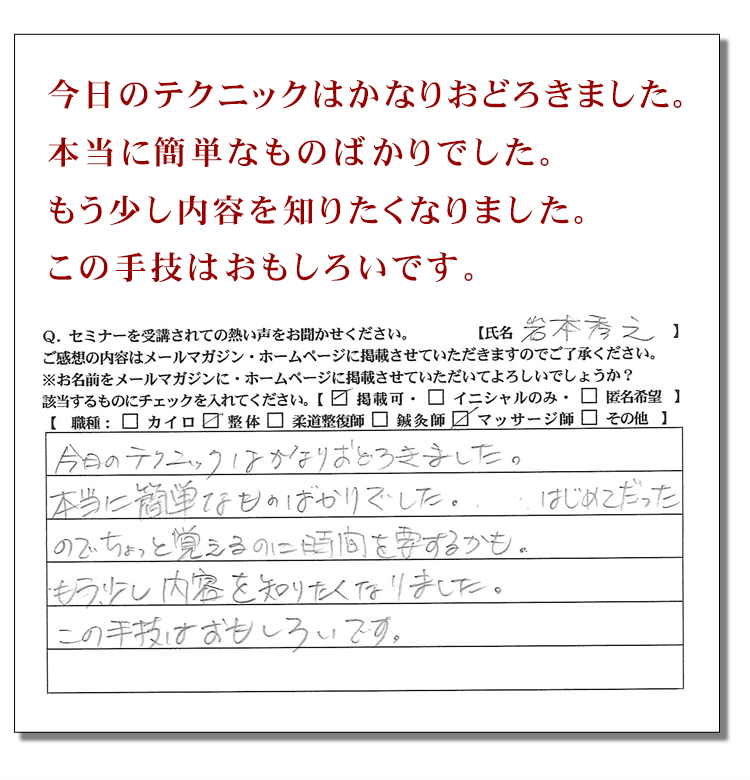 今日のテクニックはかなりおどろきました。
本当に簡単なものばかりでした。
もう少し内容を知りたくなりました。
この手技はおもしろいです。
Q. セミナーを受講されての熱い声をお聞かせください。 【氏名 岩本秀之 】
ご感想の内容はメールマガジン・ホームページに掲載させていただきますのでご了承ください。
※お名前をメールマガジンに・ホームページに掲載させていただいてよろしいでしょうか？
該当するものにチェックを入れてください。【 ☑ 掲載可・ □ イニシャルのみ・ □ 匿名希望 】
【 職種： □ カイロ ☑ 整体 □ 柔道整復師 □ 鍼灸師 ☑ マッサージ師 □ その他 】
今日のテクニックはかなりおどろきました。
本当に簡単なものばかりでした。 はじめてだった
のでちょっと覚えるのに時間を要するかも。
もう少し内容を知りたくなりました。
この手技はおもしろいです。